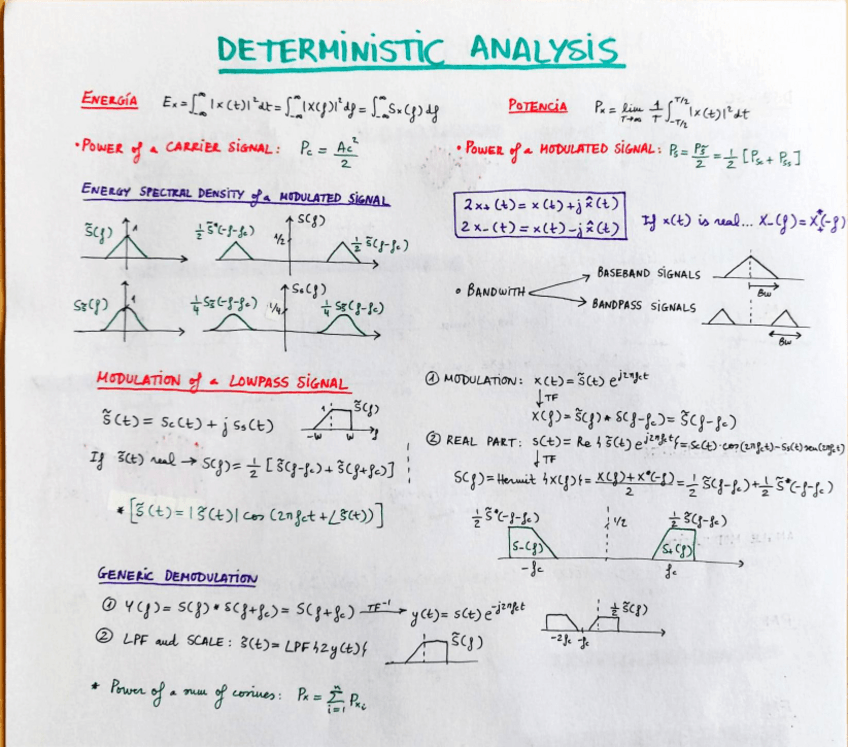 DETERMINISTIC ANALYSIS
ENERGÍA Eₓ = ∫_{-∞}^{∞} |x(t)|² dt = ∫_{-∞}^{∞} |X(f)|² df = ∫_{-∞}^{∞} Sₓ(f) df
POTENCIA Pₓ = lim_{T→∞} 1/T ∫_{-T/2}^{T/2} |x(t)|² dt
• POWER of a CARRIER SIGNAL: P_c = A_c²/2
• POWER of a MODULATED SIGNAL: P_s = P_s̃/2 = 1/2 [P_sc + P_ss]
ENERGY SPECTRAL DENSITY of a MODULATED SIGNAL
s̃(f) 1 1/2 s̃*(-f-fc) S(f) 1/2 1/2 s̃(f-fc)
S_s̃(f) 1 1/4 S_s̃(-f-fc) Sₛ(f) 1/4 1/4 S_s̃(f-fc)
2x₊(t) = x(t) + j x̂(t)
2x₋(t) = x(t) - j x̂(t)
If x(t) is real... X₋(f) = X₊*(-f)
• BANDWITH
BASEBAND SIGNALS
BW
BANDPASS SIGNALS
BW
MODULATION of a LOWPASS SIGNAL
s̃(t) = s_c(t) + j s_s(t) 1 s̃(f) -W W f
If s̃(t) real → S(f) = 1/2 [s̃(f-fc) + s̃(f+fc)]
* [s̃(t) = |s̃(t)| cos(2πfct + ∠s̃(t))]
① MODULATION: x(t) = s̃(t) e^{j2πfct}
↓TF
X(f) = s̃(f) * δ(f-fc) = s̃(f-fc)
② REAL PART: s(t) = Re{s̃(t) e^{j2πfct}} = s_c(t)·cos(2πfct) - s_s(t) sen(2πfct)
↓TF
S(f) = Hermit{X(f)} = X(f) + X*(-f)/2 = 1/2 s̃(f-fc) + 1/2 s̃*(-f-fc)
1/2 s̃*(-f-fc) 1/2 1/2 s̃(f-fc)
S₋(f) S₊(f)
-fc fc
GENERIC DEMODULATION
① Y(f) = S(f) * δ(f+fc) = S(f+fc) TF⁻¹→ y(t) = s(t) e^{-j2πfct}
1/2 s̃(f)
-2fc -fc
② LPF and SCALE: s̃(t) = LPF{2y(t)} s̃(f)
* Power of a sum of cosines: Pₓ = Σ_{i=1}^{n} P_{xi}